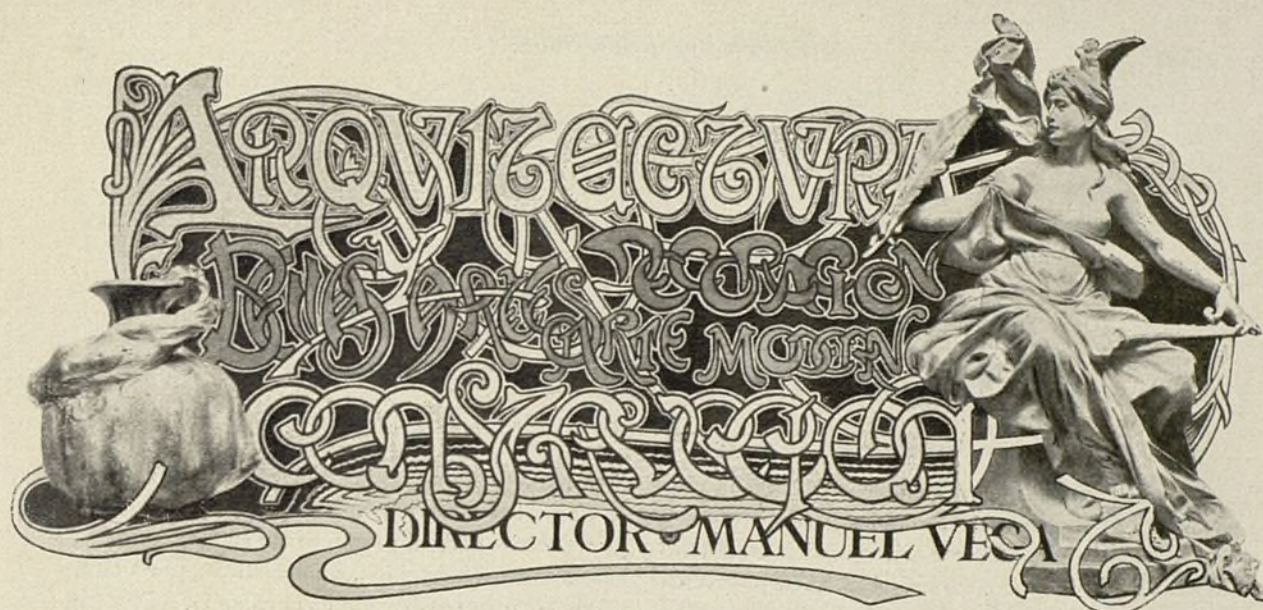 ARQUITECTURA
BELLAS ARTES DECORACION
ARTE MODERNO
CONSTRUCCION
DIRECTOR MANUEL VEGA